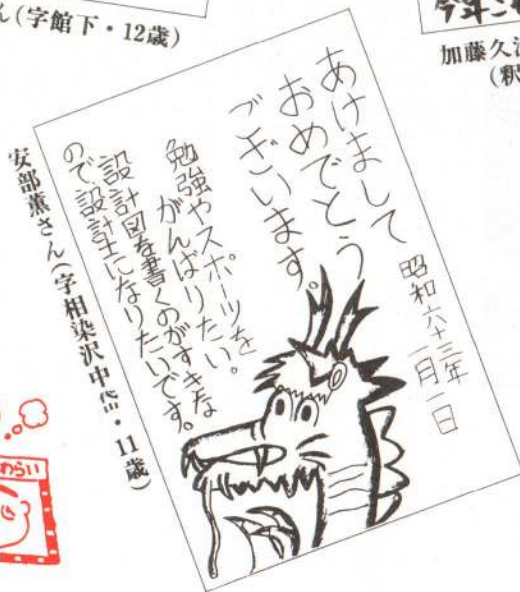 ん(字館下・12歳)
今年こ
加藤久
(釈
あけまして
おめでとう
ございます。
昭和六十三年
一月一日
勉強やスポーツを
がんばりたい。
設計図を書くのがすきな
ので、設計士になりたいです。
安部薫さん(字相染沢中岱・11歳)
わらい